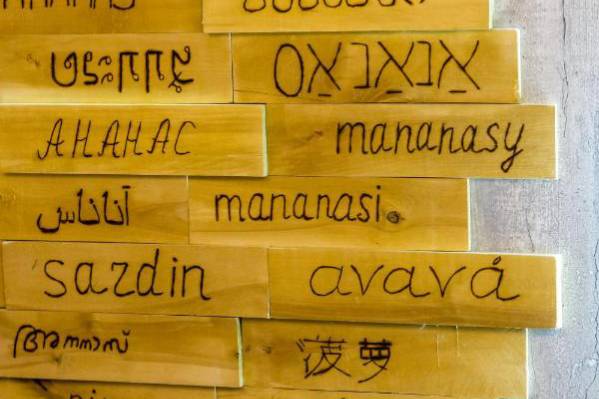 אַנאַנאַס
АНАНАС mananasy
آناناس mananasi
sazdin avavá
അനനാസ് 菠萝